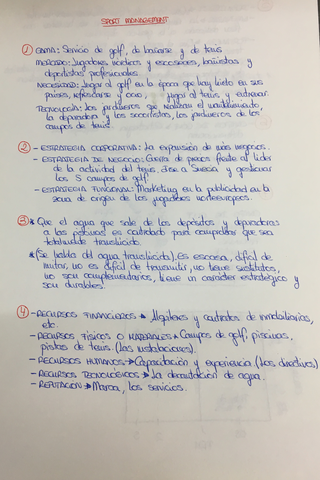 SPORT MANAGEMENT
① GAMA: Servicio de golf, de balneario y de tenis
MERCADO: Jugadores nórdicos y escoceses, bañistas y
deportistas profesionales.
NECESIDAD: Jugar al golf en la época que hay hielo en sus
países, refrescarse y ocio, jugar al tenis y entrenar.
TECNOLOGÍA: Los jardineros que realizan el mantenimiento,
la depuradora y los socorristas, los jardineros de los
campos de tenis.
② - ESTRATEGIA CORPORATIVA: La expansión de más negocios.
- ESTRATEGIA DE NEGOCIO: Guerra de precios frente al líder
de la actividad del tenis, irse a Suecia y gestionar
los 5 campos de golf.
- ESTRATEGIA FUNCIONAL: Marketing en la publicidad en la
zona de origen de los jugadores norteeuropeos.
③ * Que el agua que sale de los depósitos y depuradoras
a las piscinas es controlado para comprobar que sea
totalmente translúcida.
* (Se habla del agua translúcida). Es escasa, difícil de
imitar, no es difícil de transmitir, no tiene sustitutos,
no son complementarios, tiene un carácter estratégico y
son durables.
④ - RECURSOS FINANCIEROS → Alquileres y contratos de inmobiliarias,
etc.
- RECURSOS FÍSICOS O MATERIALES → Campos de golf, piscinas,
pistas de tenis. (Las instalaciones).
- RECURSOS HUMANOS → Capacitación y experiencia (Los directivos)
- RECURSOS TECNOLÓGICOS → La decantación de agua.
- REPUTACIÓN → Marca, los servicios.